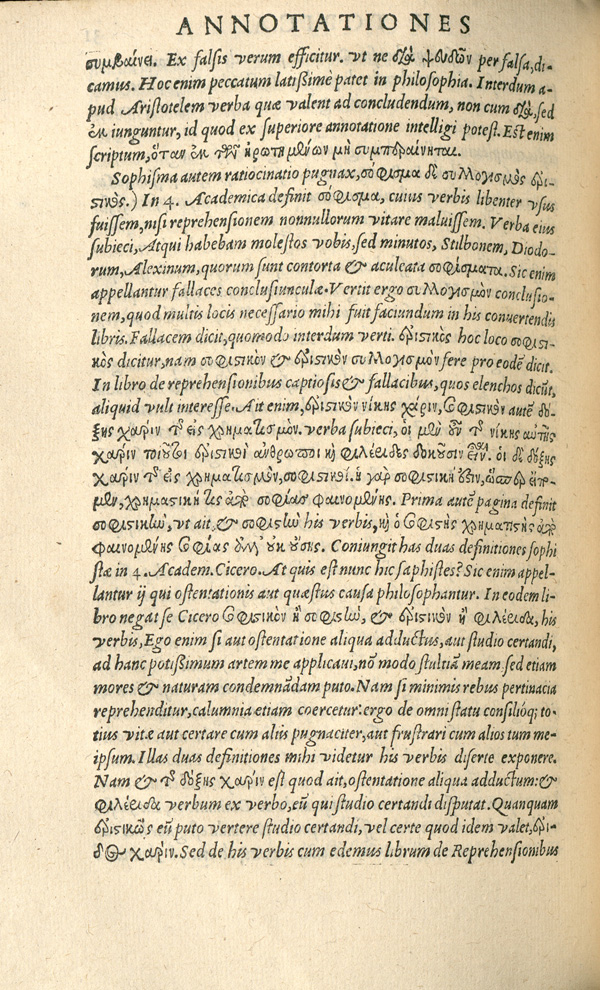 ANNOTATIONES
συμβαίνει. Ex falsis verum efficitur. vt ne διὰ ψευδῶν per falsa, di-
camus. Hoc enim peccatum latißimè patet in philosophia. Interdum a-
pud Aristotelem verba quæ valent ad concludendum, non cum διὰ, sed
ἐκ iunguntur, id quod ex superiore annotatione intelligi potest. Est enim
scriptum, ὅταν ἐκ τῶν ἠρωτημένων μὴ συμπεραίνηται.
Sophisma autem ratiocinatio pugnax, σόφισμα δὲ συλλογισμὸς ἐρι-
στικός.) In 4. Academica definit σόφισμα, cuius verbis libenter vsus
fuissem, nisi reprehensionem nonnullorum vitare maluissem. Verba eius
subieci, Atqui habebam molestos vobis, sed minutos, Stilbonem, Diodo-
rum, Alexinum, quorum sunt contorta & aculeata σοφίσματα. Sic enim
appellantur fallaces conclusiunculæ. Vertit ergo συλλογισμὸν conclusio-
nem, quod multis locis necessario mihi fuit faciundum in his conuertendis
libris. Fallacem dicit, quomodo interdum verti. ἐριστικὸς hoc loco σοφιστι-
κὸς dicitur, nam σοφιστικὸν & ἐριστικὸν συλλογισμὸν fere pro eodē dicit.
In libro de reprehensionibus captiosis & fallacibus, quos elenchos dicūt,
aliquid vult interesse. Ait enim, ἐριστικὸν νίκης χάριν, σοφιστικὸν autē δό-
ξης χάριν τῆς εἰς χρηματισμόν. verba subieci, οἱ μὲν οὖν τῆς νίκης αὐτῆς
χάριν τοιοῦτοι ἐριστικοὶ ἄνθρωποι καὶ φιλέριδες δοκοῦσιν εἶναι. οἱ δὲ δόξης
χάριν τῆς εἰς χρηματισμὸν, σοφιστικοί. ἡ γὰρ σοφιστική ἐστιν, ὥσπερ εἴπο-
μεν, χρηματιστική τις ἀπὸ σοφίας φαινομένης. Prima autē pagina definit
σοφιστικὴν, vt ait, & σοφιστὴν his verbis, καὶ ὁ σοφιστὴς χρηματιστὴς ἀπὸ
φαινομένης σοφίας ἀλλ᾽ οὐκ οὔσης. Coniungit has duas definitiones sophi
stæ in 4. Academ. Cicero. At quis est nunc hic saphistes? Sic enim appel-
lantur ij qui ostentationis aut quæstus causa philosophantur. In eodem li-
bro negat se Cicero σοφιστικὸν ἢ σοφιστὴν, & ἐριστικὸν ἢ φιλέριδα, his
verbis, Ego enim si aut ostentatione aliqua adductus, aut studio certandi,
ad hanc potißimum artem me applicaui, nō modo stultiā meam sed etiam
mores & naturam condemnādam puto. Nam si minimis rebus pertinacia
reprehenditur, calumnia etiam coercetur: ergo de omni statu consilióq; to-
tius vitæ aut certare cum aliis pugnaciter, aut frustrari cum alios tum me-
ipsum. Illas duas definitiones mihi videtur his verbis diserte exponere.
Nam & τῆς δόξης χάριν est quod ait, ostentatione aliqua adductum: &
φιλέριδα verbum ex verbo, eū qui studio certandi disputat. Quanquam
ἐριστικῶς eū puto vertere studio certandi, vel certe quod idem valet, ἔρι-
δος χάριν. Sed de his verbis cum edemus librum de Reprehensionibus